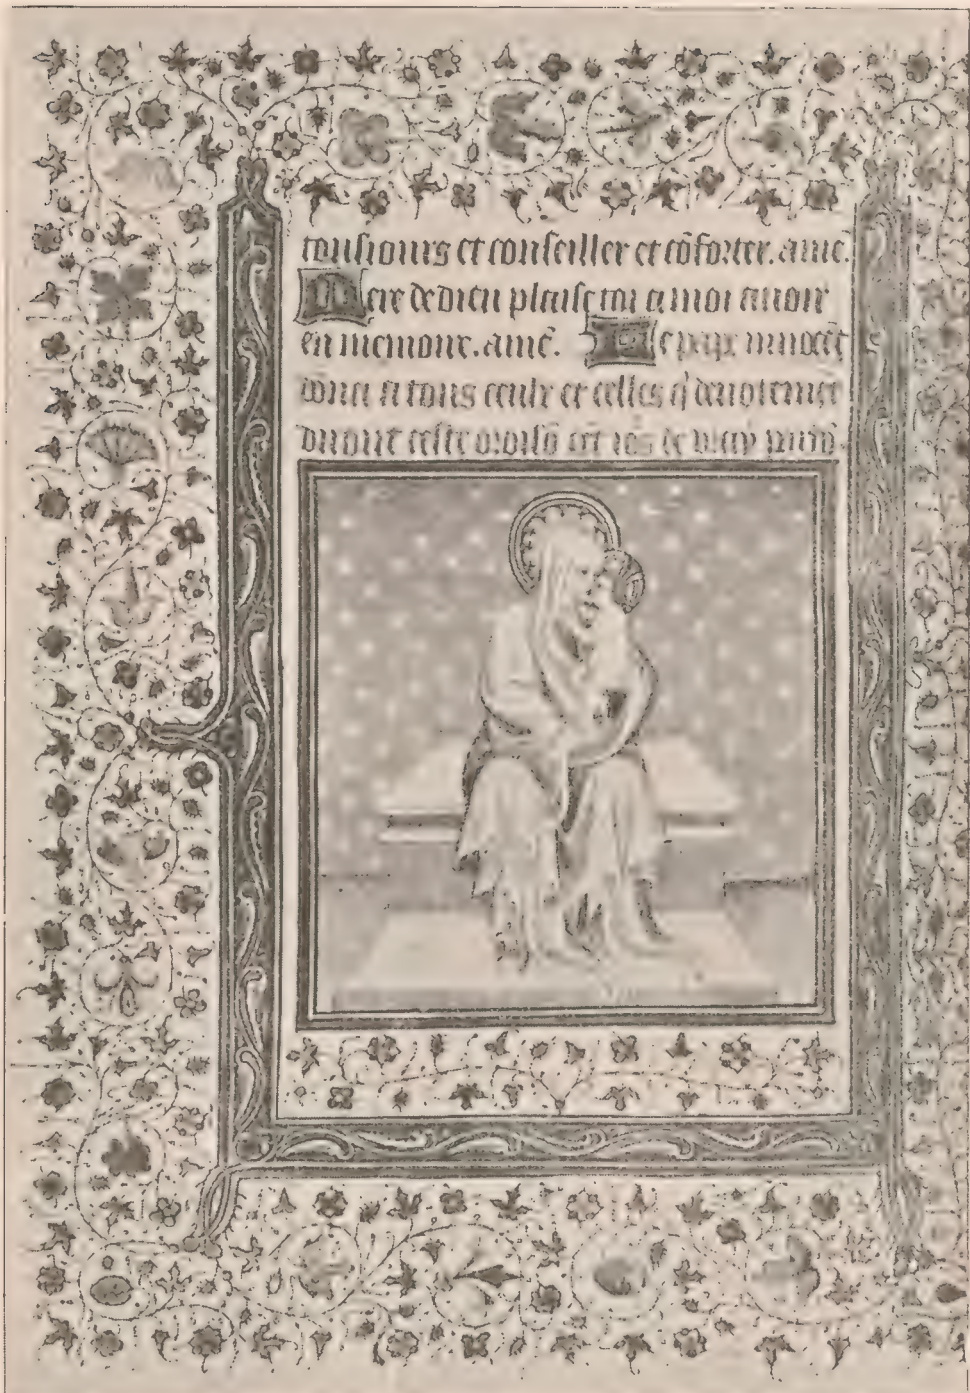 touſiours et conſeiller et cõforter. amẽ.
Mere de dieu plaiſe toi a moi auoir
en memoire. amẽ. Le pape innocẽt
donna a tous ceulx et celles q̃ deuotemẽt
diront ceſte oriſõ